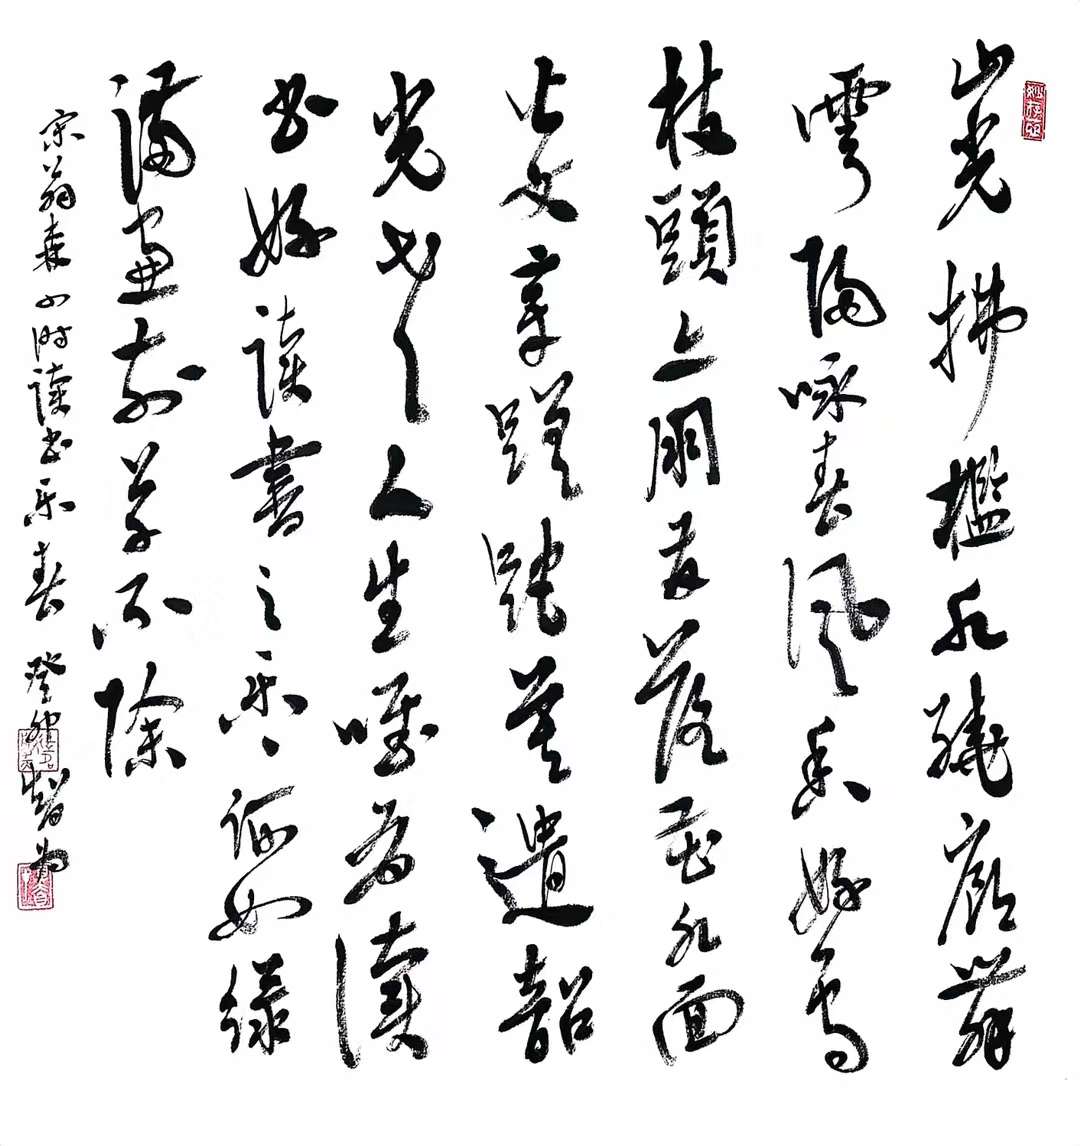 山光拂檻水繞廊舞
雩歸咏春風香好鳥
枝頭亦朋友落花水面
皆文章蹉跎莫遣韶
光老人生唯有读
书好读書之乐々何如绿
满窗前草不除
宋翁森四时读书乐春 癸卯